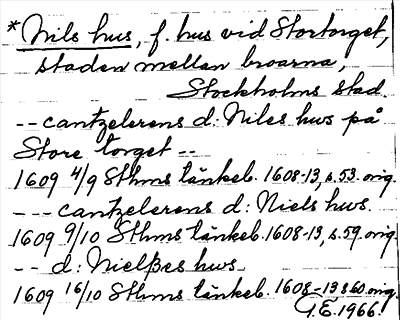 *Nils hus, f. hus vid Stortorget,
staden mellan broarna,
Stockholms stad.
-- cantzelerens d: Niles hus på
Store torget --
1609 4/9 Sthms tänkeb. 1608-13, s. 53. orig.
--- cantzelerens d: Niels hws.
1609 9/10 Sthms tänkeb. 1608-13, s. 59. orig.
-- d: Nielßes hws.
1609 16/10 Sthms tänkeb. 1608-13 s 60 orig.
G.E. 1966.